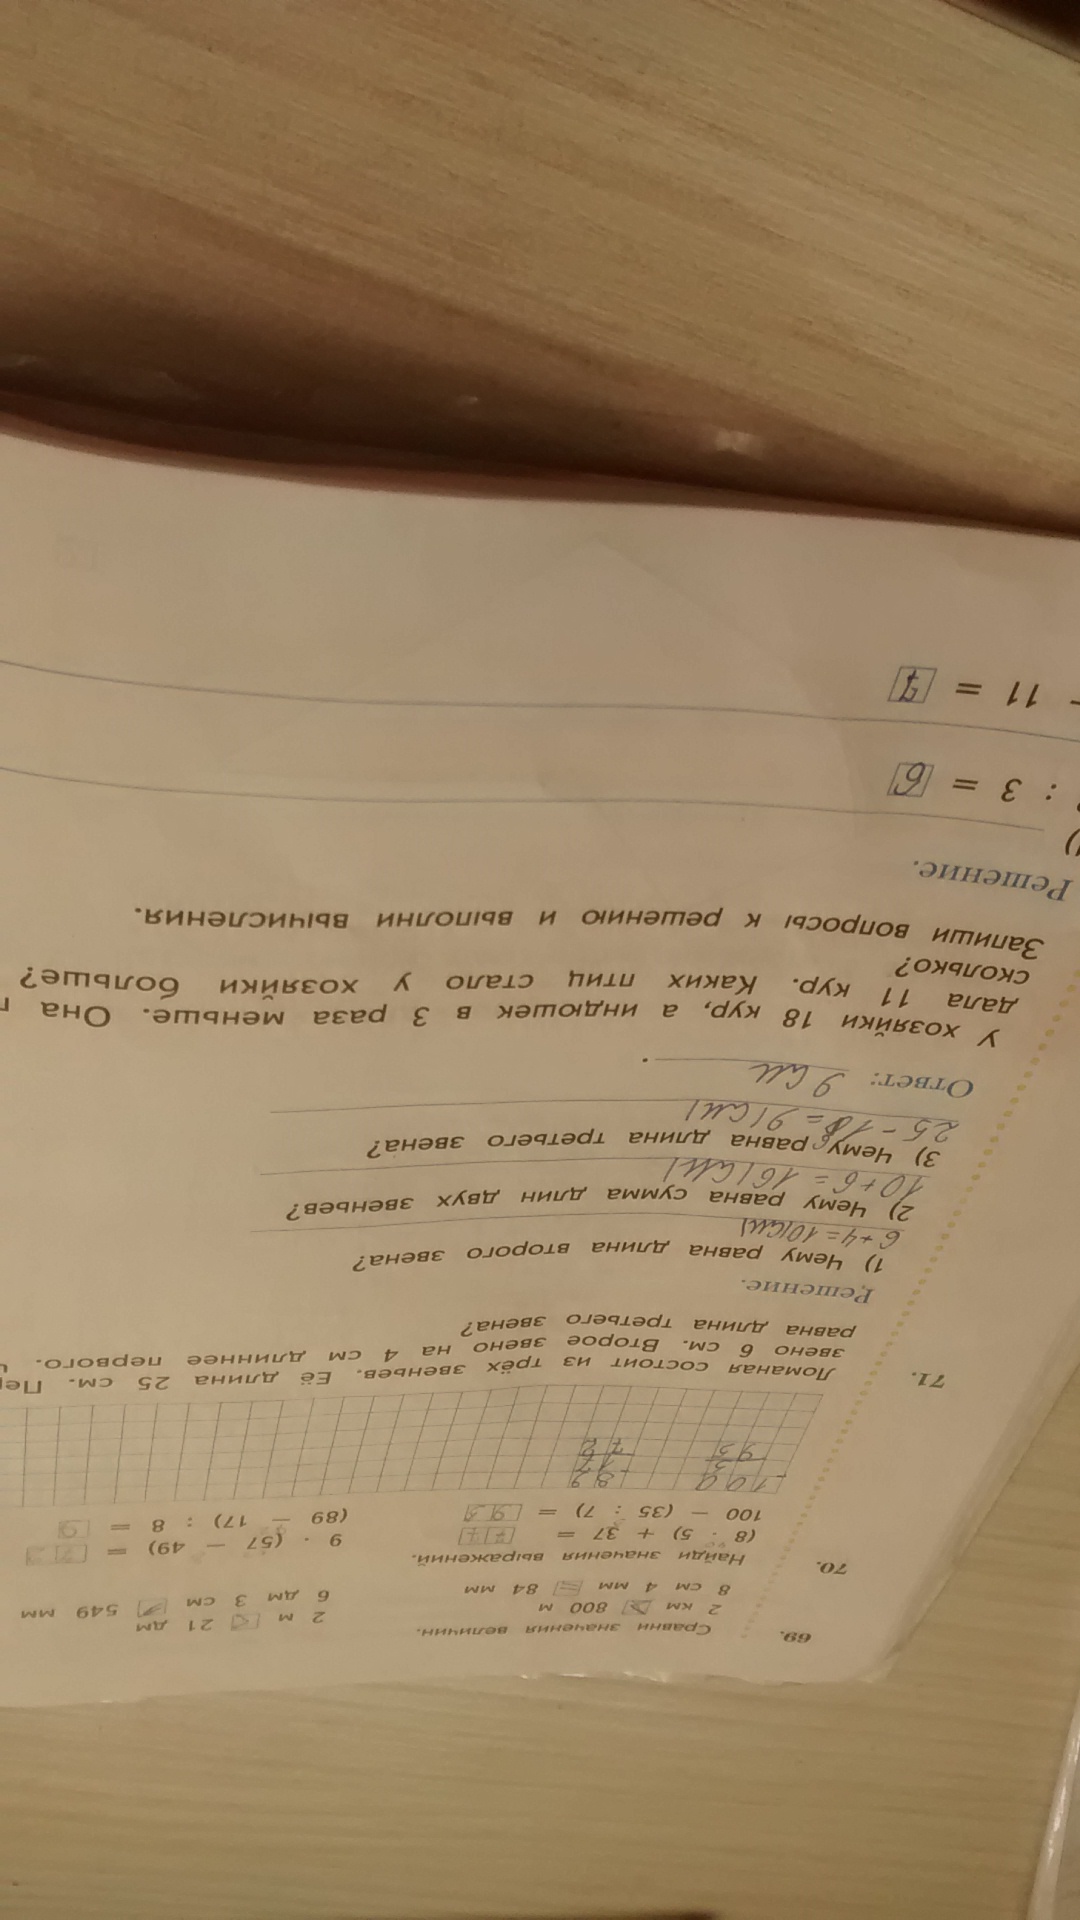 69. Сравни значения величин.
2 км > 800 м 2 м < 21 дм
8 см 4 мм = 84 мм 6 дм 3 см > 549 мм
70. Найди значения выражений.
(8 · 5) + 37 = 77 9 · (57 − 49) = 72
100 − (35 : 7) = 95 (89 − 17) : 8 = 9
100 89
− 5 − 17
95 72
71. Ломаная состоит из трёх звеньев. Её длина 25 см.
звено 6 см. Второе звено на 4 см длиннее первого.
равна длина третьего звена?
Решение.
1) Чему равна длина второго звена?
6+4=10(см)
2) Чему равна сумма длин двух звеньев?
10+6=16(см)
3) Чему равна длина третьего звена?
25-16=9(см)
Ответ: 9 см.
У хозяйки 18 кур, а индюшек в 3 раза меньше. Она
дала 11 кур. Каких птиц стало у хозяйки больше?
сколько?
Запиши вопросы к решению и выполни вычисления.
Решение.
: 3 = 6
- 11 = 7